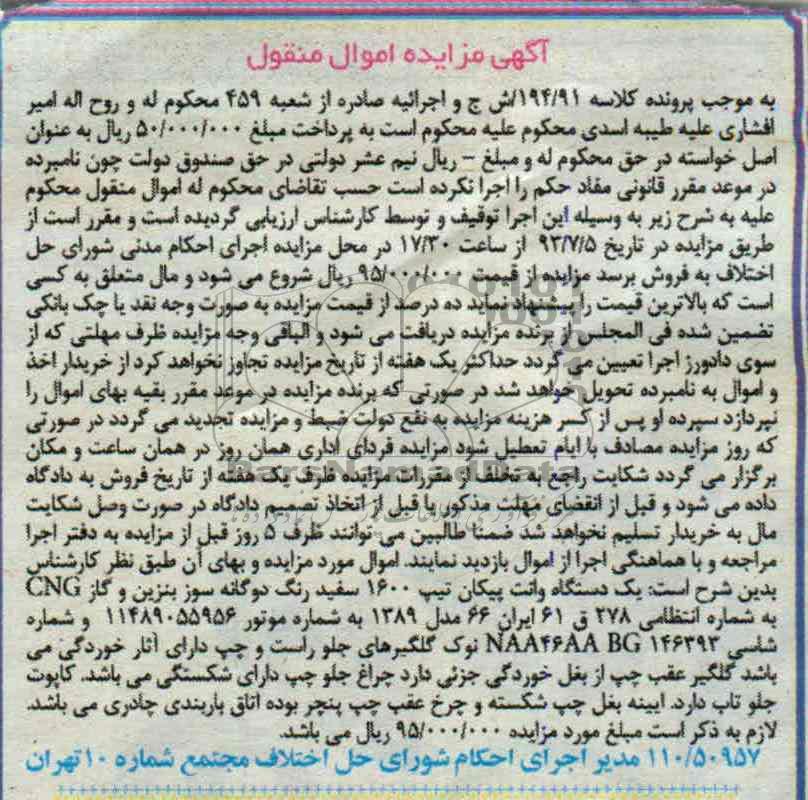 آگهی مزایده اموال منقول
به موجب پرونده کلاسه ۱۹۴/۹۱/ش ج و اجرائیه صادره از شعبه ۴۵۹ محکوم له و روح اله امیر
افشاری علیه طیبه اسدی محکوم علیه محکوم است به پرداخت مبلغ ۵۰/۰۰۰/۰۰۰ ریال به عنوان
اصل خواسته در حق محکوم له و مبلغ - ریال نیم عشر دولتی در حق صندوق دولت چون نامبرده
در موعد مقرر قانونی مفاد حکم را اجرا نکرده است حسب تقاضای محکوم له اموال منقول محکوم
علیه به شرح زیر به وسیله این اجرا توقیف و توسط کارشناس ارزیابی گردیده است و مقرر است از
طریق مزایده در تاریخ ۹۳/۷/۵ از ساعت ۱۷/۳۰ در محل مزایده اجرای احکام مدنی شورای حل
اختلاف به فروش برسد مزایده از قیمت ۹۵/۰۰۰/۰۰۰ ریال شروع می شود و مال متعلق به کسی
است که بالاترین قیمت را پیشنهاد نماید ده درصد از قیمت مزایده به صورت وجه نقد یا چک بانکی
تضمین شده فی المجلس از برنده مزایده دریافت می شود و الباقی وجه مزایده ظرف مهلتی که از
سوی دادورز اجرا تعیین می گردد حداکثر یک هفته از تاریخ مزایده تجاوز نخواهد کرد از خریدار اخذ
و اموال به نامبرده تحویل خواهد شد در صورتی که برنده مزایده در موعد مقرر بقیه بهای اموال را
نپردازد سپرده او پس از کسر هزینه مزایده به نفع دولت ضبط و مزایده تجدید می گردد در صورتی
که روز مزایده مصادف با ایام تعطیل شود مزایده فردای اداری همان روز در همان ساعت و مکان
برگزار می گردد شکایت راجع به تخلف از مقررات مزایده ظرف یک هفته از تاریخ فروش به دادگاه
داده می شود و قبل از انقضای مهلت مذکور یا قبل از اتخاذ تصمیم دادگاه در صورت وصل شکایت
مال به خریدار تسلیم نخواهد شد ضمنا طالبین می توانند ظرف ۵ روز قبل از مزایده به دفتر اجرا
مراجعه و با هماهنگی اجرا از اموال بازدید نمایند. اموال مورد مزایده و بهای آن طبق نظر کارشناس
بدین شرح است: یک دستگاه وانت پیکان تیپ ۱۶۰۰ سفید رنگ دوگانه سوز بنزین و گاز CNG
به شماره انتظامی ۲۷۸ ق ۶۱ ایران ۶۶ مدل ۱۳۸۹ به شماره موتور ۱۱۴۸۹۰۵۵۹۵۶ و شماره
شاسی NAA۴۶AA BG ۱۴۶۳۹۳ نوک گلگیرهای جلو راست و چپ دارای آثار خوردگی می
باشد گلگیر عقب چپ از بغل خوردگی جزئی دارد چراغ جلو چپ دارای شکستگی می باشد. کاپوت
جلو تاب دارد. ایینه بغل چپ شکسته و چرخ عقب چپ پنچر بوده اتاق باربندی چادری می باشد.
لازم به ذکر است مبلغ مورد مزایده ۹۵/۰۰۰/۰۰۰ ریال می باشد.
۱۱۰/۵۰۹۵۷ مدیر اجرای احکام شورای حل اختلاف مجتمع شماره ۱۰ تهران
ParsNamadData